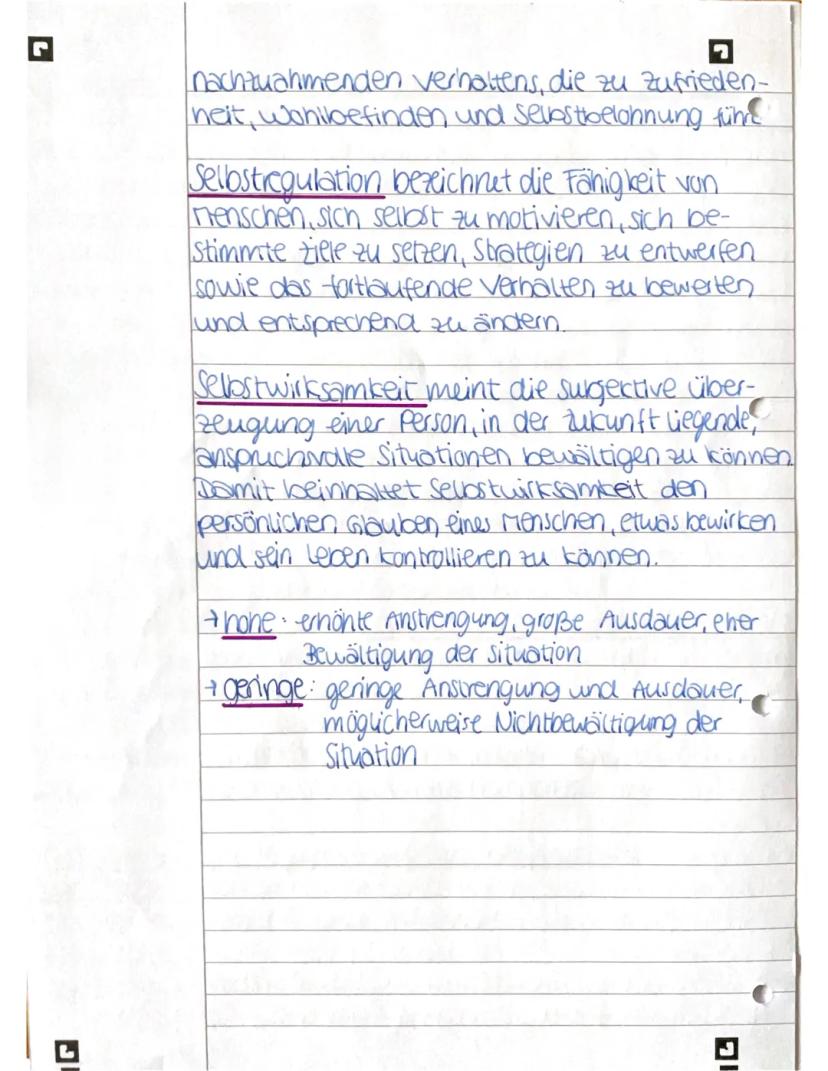 nachzuahmenden Verhaltens, die zu Zufrieden-
heit, Wohlbefinden und Selbstbelohnung führt
Selbstregulation bezeichnet die Fähigkeit von
Menschen, sich selbst zu motivieren, sich be-
stimmte Ziele zu setzen, Strategien zu entwerfen
sowie das fortlaufende Verhalten zu bewerten
und entsprechend zu ändern.
Selbstwirksamkeit meint die subjective Über-
zeugung einer Person, in der Zukunft liegende,
anspruchsvolle Situationen bewältigen zu können
Damit beinhaltet Selbstwirksamkeit den
persönlichen Glauben eines Menschen, etwas bewirken
und sein Leben kontrollieren zu können.
→ hohe: erhöhte Anstrengung, große Ausdauer, eher
Bewältigung der Situation
→ geringe: geringe Anstrengung und Ausdauer,
möglicherweise Nichtbewältigung der
Situation